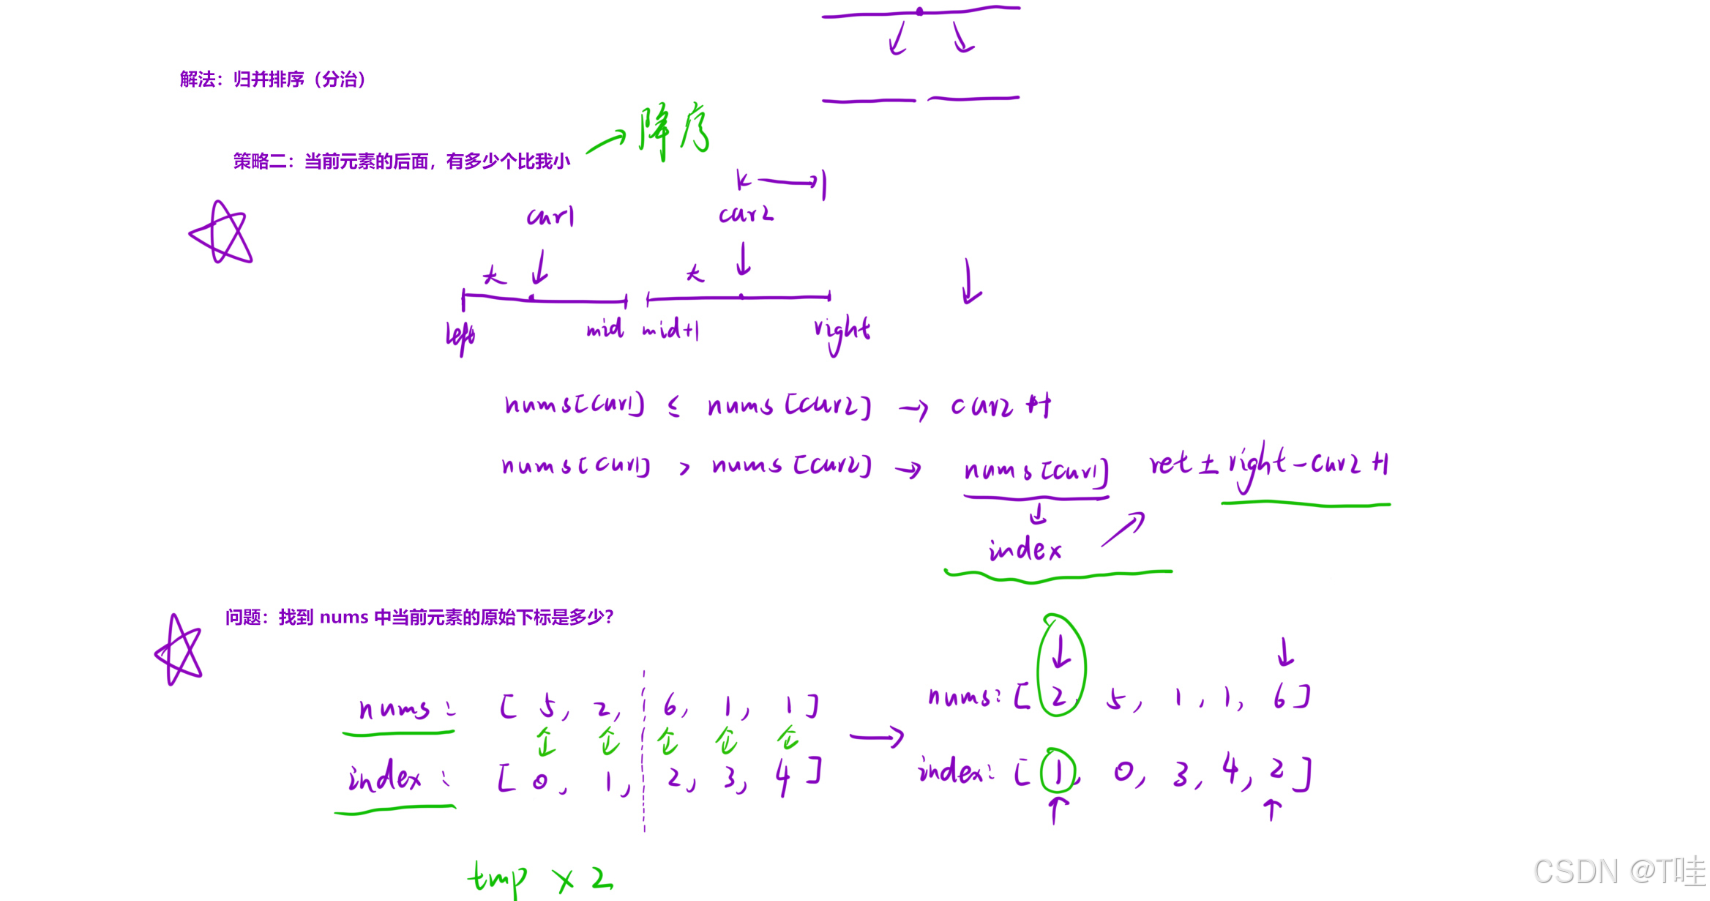 解法：归并排序（分治）
策略二：当前元素的后面，有多少个比我小 → 降序
k
cur1 cur2
大 大
left mid mid+1 right
nums[cur1] ≤ nums[cur2] → cur2++
nums[cur1] > nums[cur2] → nums[cur1] ret += right-cur2+1
index
问题：找到 nums 中当前元素的原始下标是多少？
nums: [5, 2, 6, 1, 1] → nums: [2, 5, 1, 1, 6]
index: [0, 1, 2, 3, 4] index: [1, 0, 3, 4, 2]
tmp × 2
CSDN @T哇